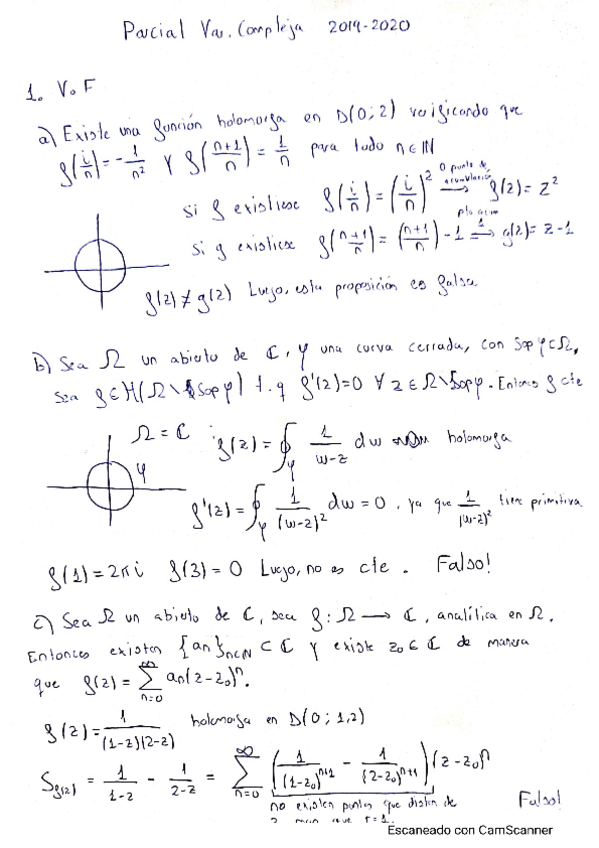 Parcial Var. Compleja 2019-2020
1. V o F
a) Existe una función holomorfa en D(0;2) verificando que
f(i/n) = -1/n² y f((n+1)/n) = 1/n para todo n∈ℕ
si f existiese f(i/n) = (i/n)² ⟶ f(z) = z²
0 punto de acumulación
si g existiese f((n+1)/n) = ((n+1)/n) - 1 ⟶ g(z) = z-1
pto acum 1
f(z) ≠ g(z) Luego, esta proposición es falsa
b) Sea Ω un abierto de ℂ, φ una curva cerrada, con Sop φ⊂Ω,
Sea f∈H(Ω\Sop φ) t.q f'(z)=0 ∀ z∈Ω\Sop φ. Entonces f cte
Ω = ℂ
φ
f(z) = ∮φ 1/(w-z) dw holomorfa
f'(z) = ∮φ 1/(w-z)² dw = 0, ya que 1/(w-z)² tiene primitiva
f(1) = 2πi f(3) = 0 Luego, no es cte. Falso!
c) Sea Ω un abierto de ℂ, sea f: Ω ⟶ ℂ, analítica en Ω.
Entonces existen {an}n∈ℕ ⊂ ℂ y existe z₀∈ℂ de manera
que f(z) = ∑n=0^∞ an(z-z₀)ⁿ.
f(z) = 1/((1-z)(2-z)) holomorfa en D(0;1,2)
Sf(z) = 1/(1-z) - 1/(2-z) = ∑n=0^∞ (1/(1-z₀)ⁿ⁺¹ - 1/(2-z₀)ⁿ⁺¹)(z-z₀)ⁿ
no existen puntos que disten de
Falso!
Escaneado con CamScanner